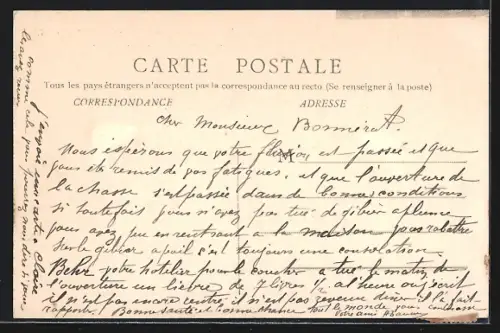 CARTE POSTALE
Tous les pays étrangers n'acceptent pas la correspondance au recto (Se renseigner à la poste)
CORRESPONDANCE ADRESSE
Cher Monsieur Bonnérat.
Nous espérons que votre fluxion est passée et que
vous êtes remis de vos fatigues. et que l'ouverture de
la chasse s'est passée dans de bonnes conditions
si toutefois vous n'avez pas tué de gibier a plume
vous avez pu en rentrant a la maison vous rabattre
sur le gibier a poil c'est toujours une consolation.
votre hotelier pour le coucher a tué le matin de
l'ouverture un lievre de 7 livres ½ a l'heure ou
il n'est pas encore rentré, il n'est pas
rapport. Bonne santé et bonne chance tout le monde vous
votre ami
j'envoie une carte a Claire
comme cela vous pourrez nous dire si vous